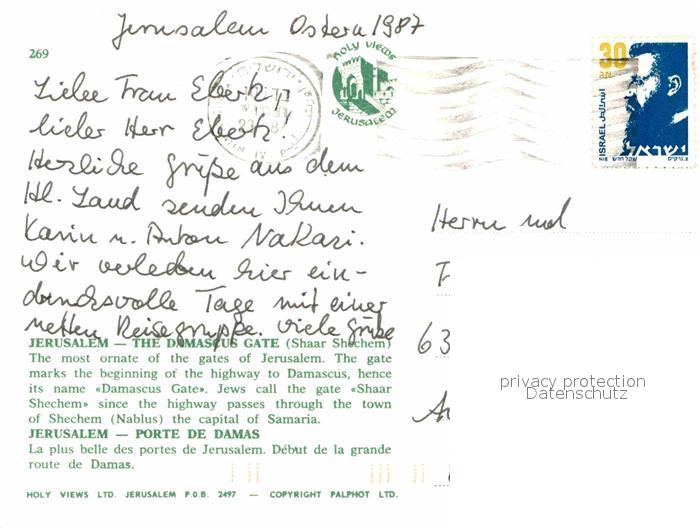 Jerusalem Ostern 1987
269
HOLY VIEWS
JERUSALEM
30
ISRAEL
ישראל
Liebe Frau Ebertz,
lieber Herr Ebertz!
Herzliche Grüße aus dem
Hl. Land senden Ihnen
Karin u. Anton
Wir verleben hier ein-
drucksvolle Tage mit einer
netten Reisegruppe. Viele Grüße
Herrn und
63
JERUSALEM — THE DAMASCUS GATE (Shaar Shechem)
The most ornate of the gates of Jerusalem. The gate
marks the beginning of the highway to Damascus, hence
its name «Damascus Gate». Jews call the gate «Shaar
Shechem» since the highway passes through the town
of Shechem (Nablus) the capital of Samaria.
JERUSALEM — PORTE DE DAMAS
La plus belle des portes de Jerusalem. Début de la grande
route de Damas.
privacy protection
Datenschutz
HOLY VIEWS LTD. JERUSALEM P.O.B. 2497 — COPYRIGHT PALPHOT LTD.